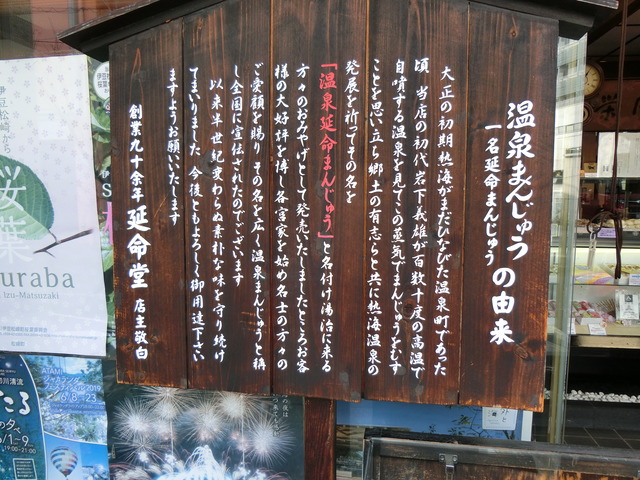 温泉まんじゅうの由来
一名延命まんじゅう
大正の初期熱海がまだひなびた温泉町であった
頃 当店の初代岩下義雄が百数十度の高温で
自噴する温泉を見てこの蒸気でまんじゅうをむす
ことを思い立ち郷土の有志らと共に熱海温泉の
発展を祈ってその名を
「温泉延命まんじゅう」と名付け湯治に来る
方々のおみやげとして発売いたしましたところお客
様の大好評を博し各宮家を始め名士の方々の
ご愛顧を賜り その名を広く温泉まんじゅうと称
し全国に宣伝されたのでございます
以来半世紀変わらぬ素朴な味を守り続け
てまいりました 今後ともよろしく御用達下さい
ますようお願いいたします
創業九十余年 延命堂 店主敬白
伊豆松崎から
桜葉
uraba
Izu-Matsuzaki
ATAMI
ジャカランダ
2019
6/8
23
川清流
たる
の夕べ
/1
9
19:00-21:00